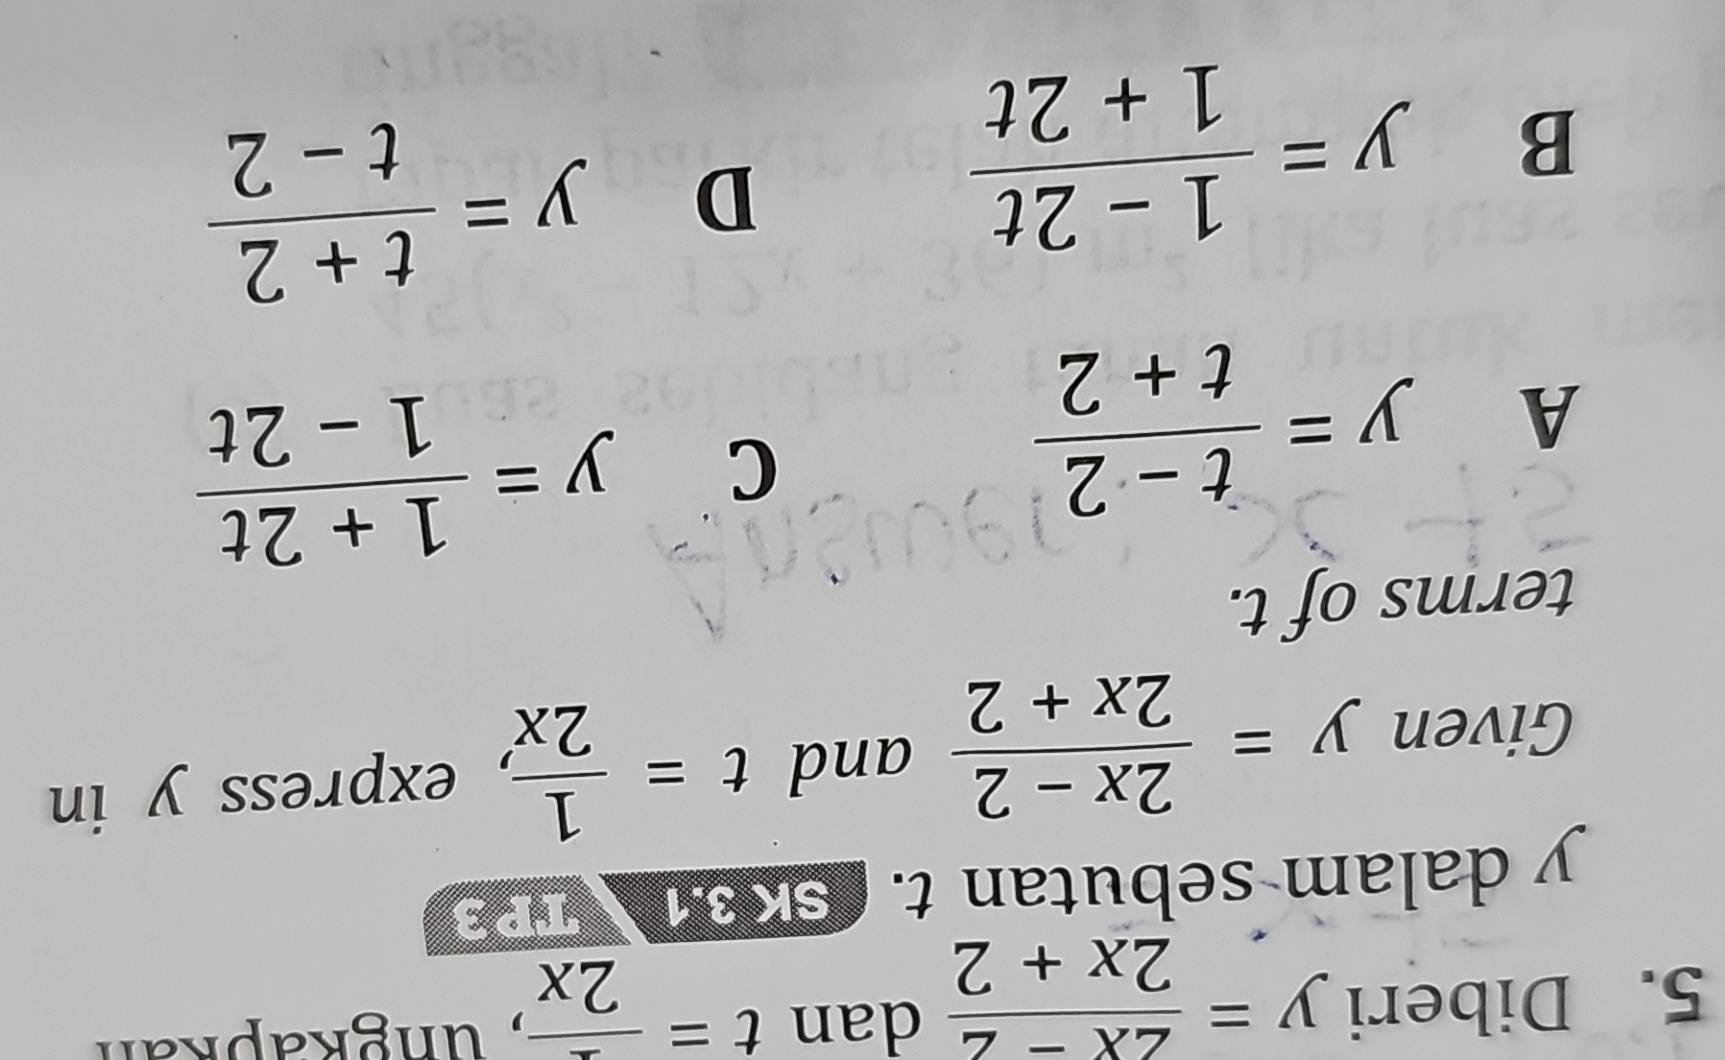 5. Diberi y = (2x − 2)/(2x + 2) dan t = 1/(2x), ungkapkan
y dalam sebutan t. SK 3.1 TP 3
Given y = (2x − 2)/(2x + 2) and t = 1/(2x), express y in
terms of t.
A y = (t − 2)/(t + 2) C y = (1 + 2t)/(1 − 2t)
B y = (1 − 2t)/(1 + 2t) D y = (t + 2)/(t − 2)